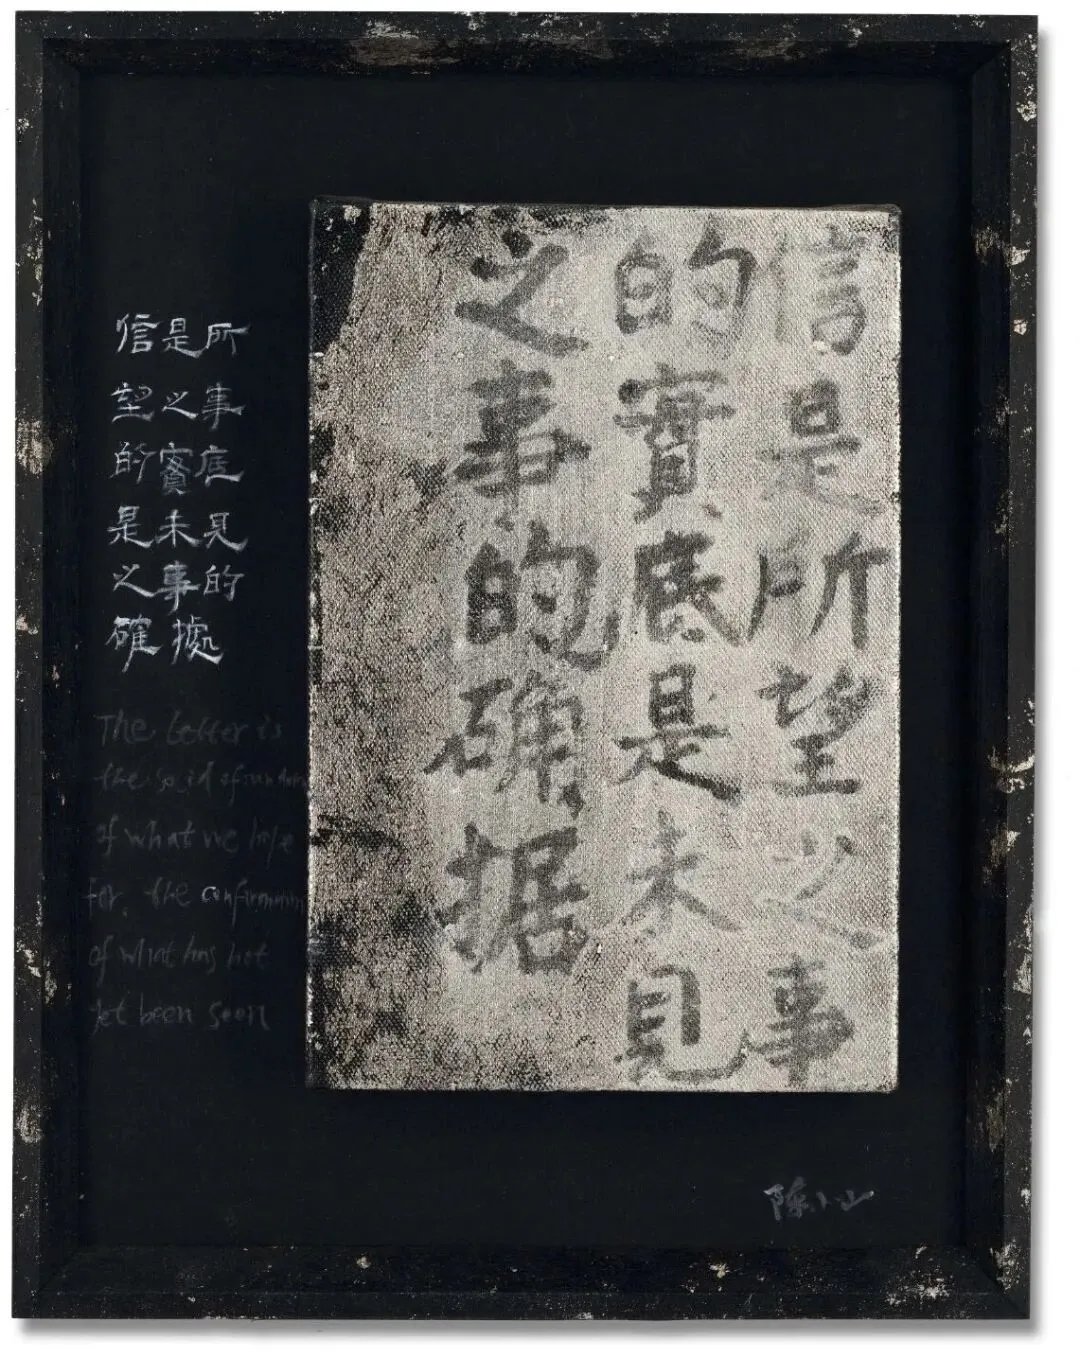 信是所望之事
的實底是未見
之事的确据
信是所
望之事
的實底
是未見
之事的
確據
The letter is
the so id
of what we hope
for, the confirmation
of what has not
yet been seen
陈小山